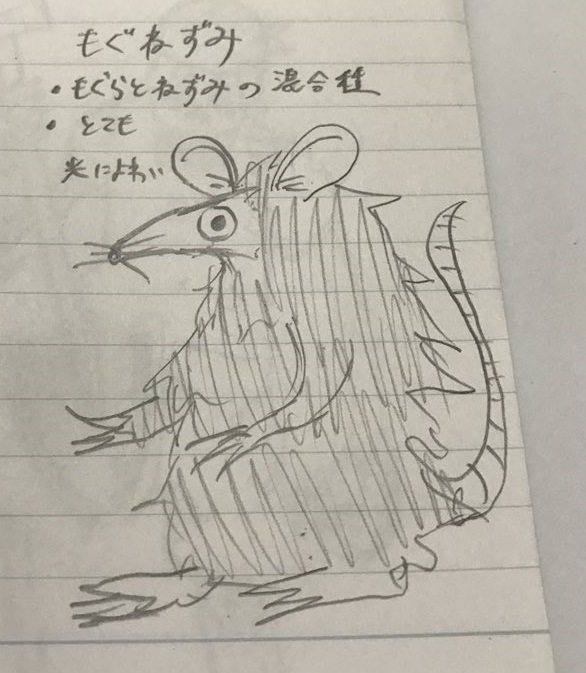 もぐねずみ
・もぐらとねずみの混合種
・とても
光によわい